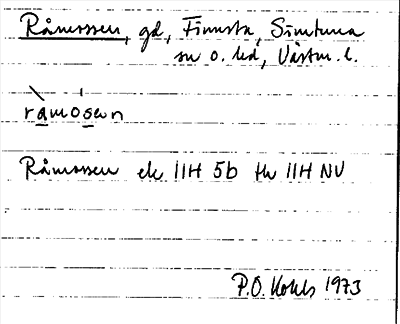 Råmossen, gd, Finnsta, Simtuna
sn o. hd, Västm. l.
ràmósen
Råmossen ek 11H 5b tk 11H NV
P.O. Kohls 1973